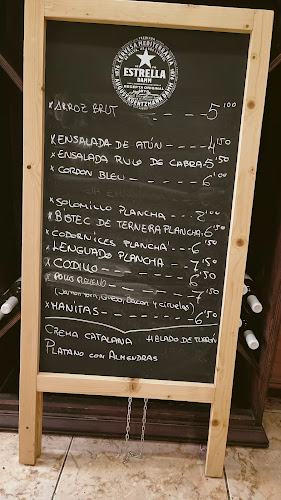 CERVEZA MEDITERRÁNEA
1876
ESTRELLA
DAMM
RECEPTA ORIGINAL
1876
x ARROZ BRUT - - - - 5'00
x ENSALADA DE ATÚN - - - 4'50
x ENSALADA RULO DE CABRA - 5'50
x CORDON BLEU - - - - - 6'50
x SOLOMILLO PLANCHA - - -
x BISTEC DE TERNERA PLANCHA - 6'50
x CODORNICES PLANCHA - - - 6'50
x LENGUADO PLANCHA - - - 7'50
x CODILLO - - - - - - 6'50
x POLLO RELLENO - - - - - 7'50
(Jamon york, Queso, Bacon y ciruelas)
x MANITAS - - - - - - - 6'50
CREMA CATALANA HELADO DE TURRON
PLATANO CON ALMENDRAS